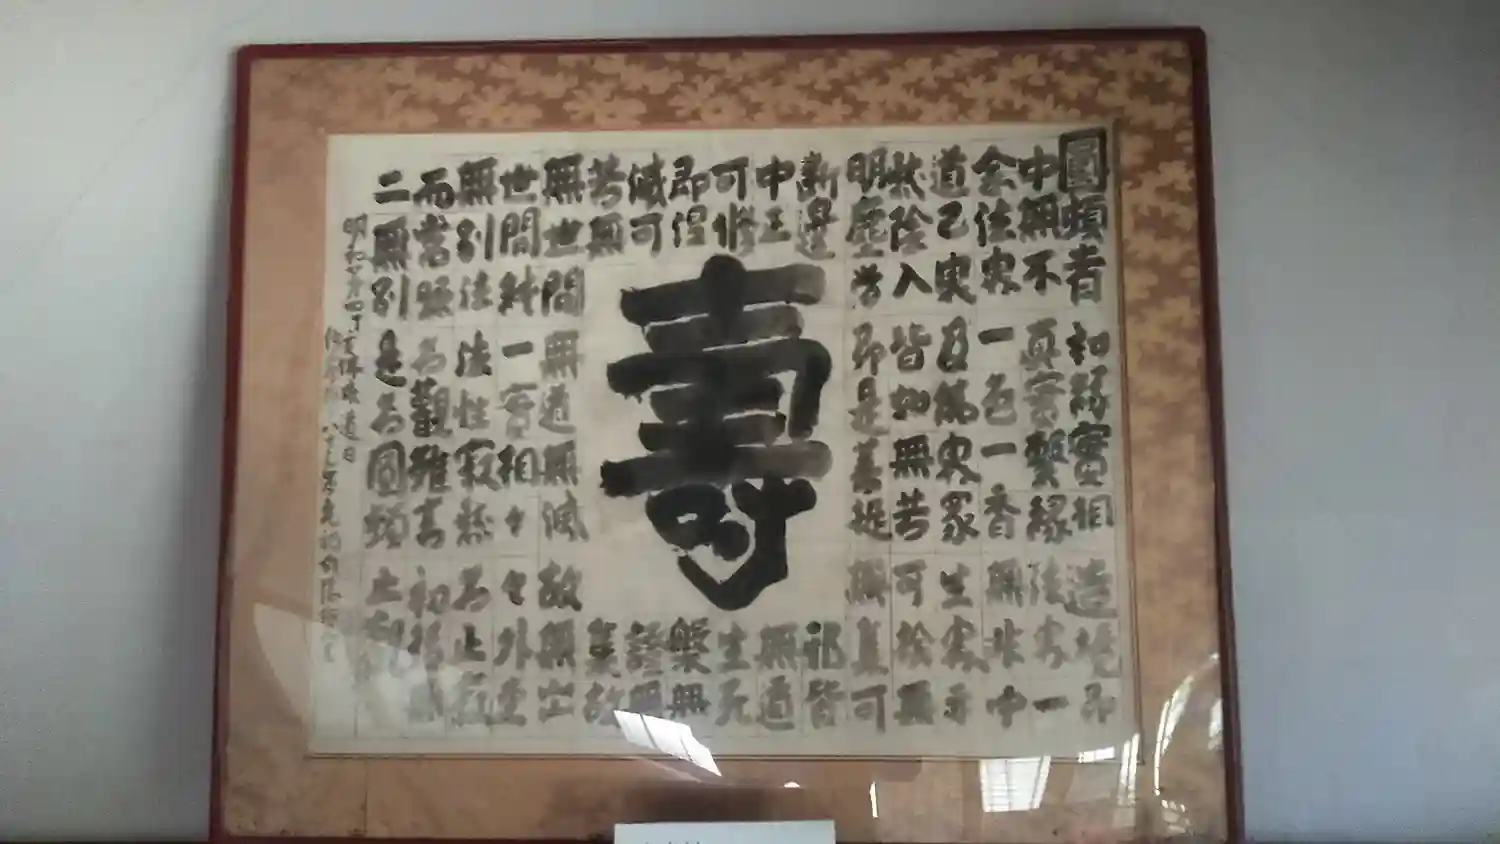 圓頓者初緣實相造境即
中無不真實繫緣法界一
念法界一色一香無非中
道己界及佛界衆生界亦
然陰入皆如無苦可捨無
明塵勞即是菩提無集可
断邊邪皆
中正無道
可修生死
即涅槃無
滅可證無
苦無集故
無世間無道無滅故無出
世間純一實相々々外更
無別法法性寂然名止寂
而常照名觀雖言初後無
二無別是名圓頓止觀
壽
明和